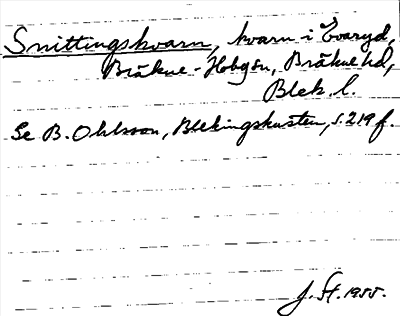 Snittingskvarn, kvarn i Evaryd,
Bräkne-Hobysn, Bräknehd,
Blek. l.
Se B. Ohlsson, Blekingskusten, s. 219 f.
J. St. 1955.